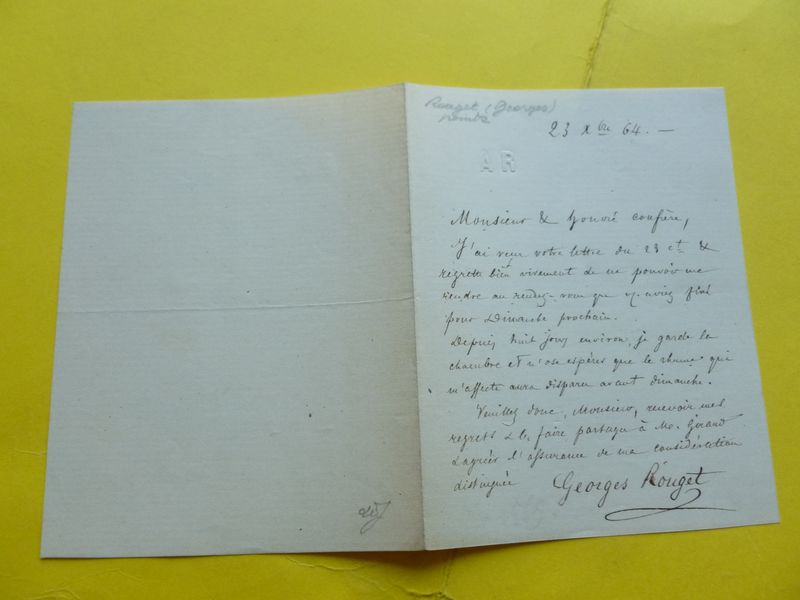 Rouget (Georges)
peintre
23 Xbre 64. —
AR
Monsieur & honoré confrère,
J'ai reçu votre lettre du 23 ct &
regrette bien vivement de ne pouvoir me
rendre au rendez-vous que v. aviez fixé
pour Dimanche prochain.
Depuis huit jours environ, je garde la
chambre et n'ose espérer que le rhume qui
m'affecte aura disparu avant dimanche.
Veuillez donc, Monsieur, recevoir mes
regrets & les faire partager à Mr. Girard
& agréer l'assurance de ma considération
distinguée
Georges Rouget